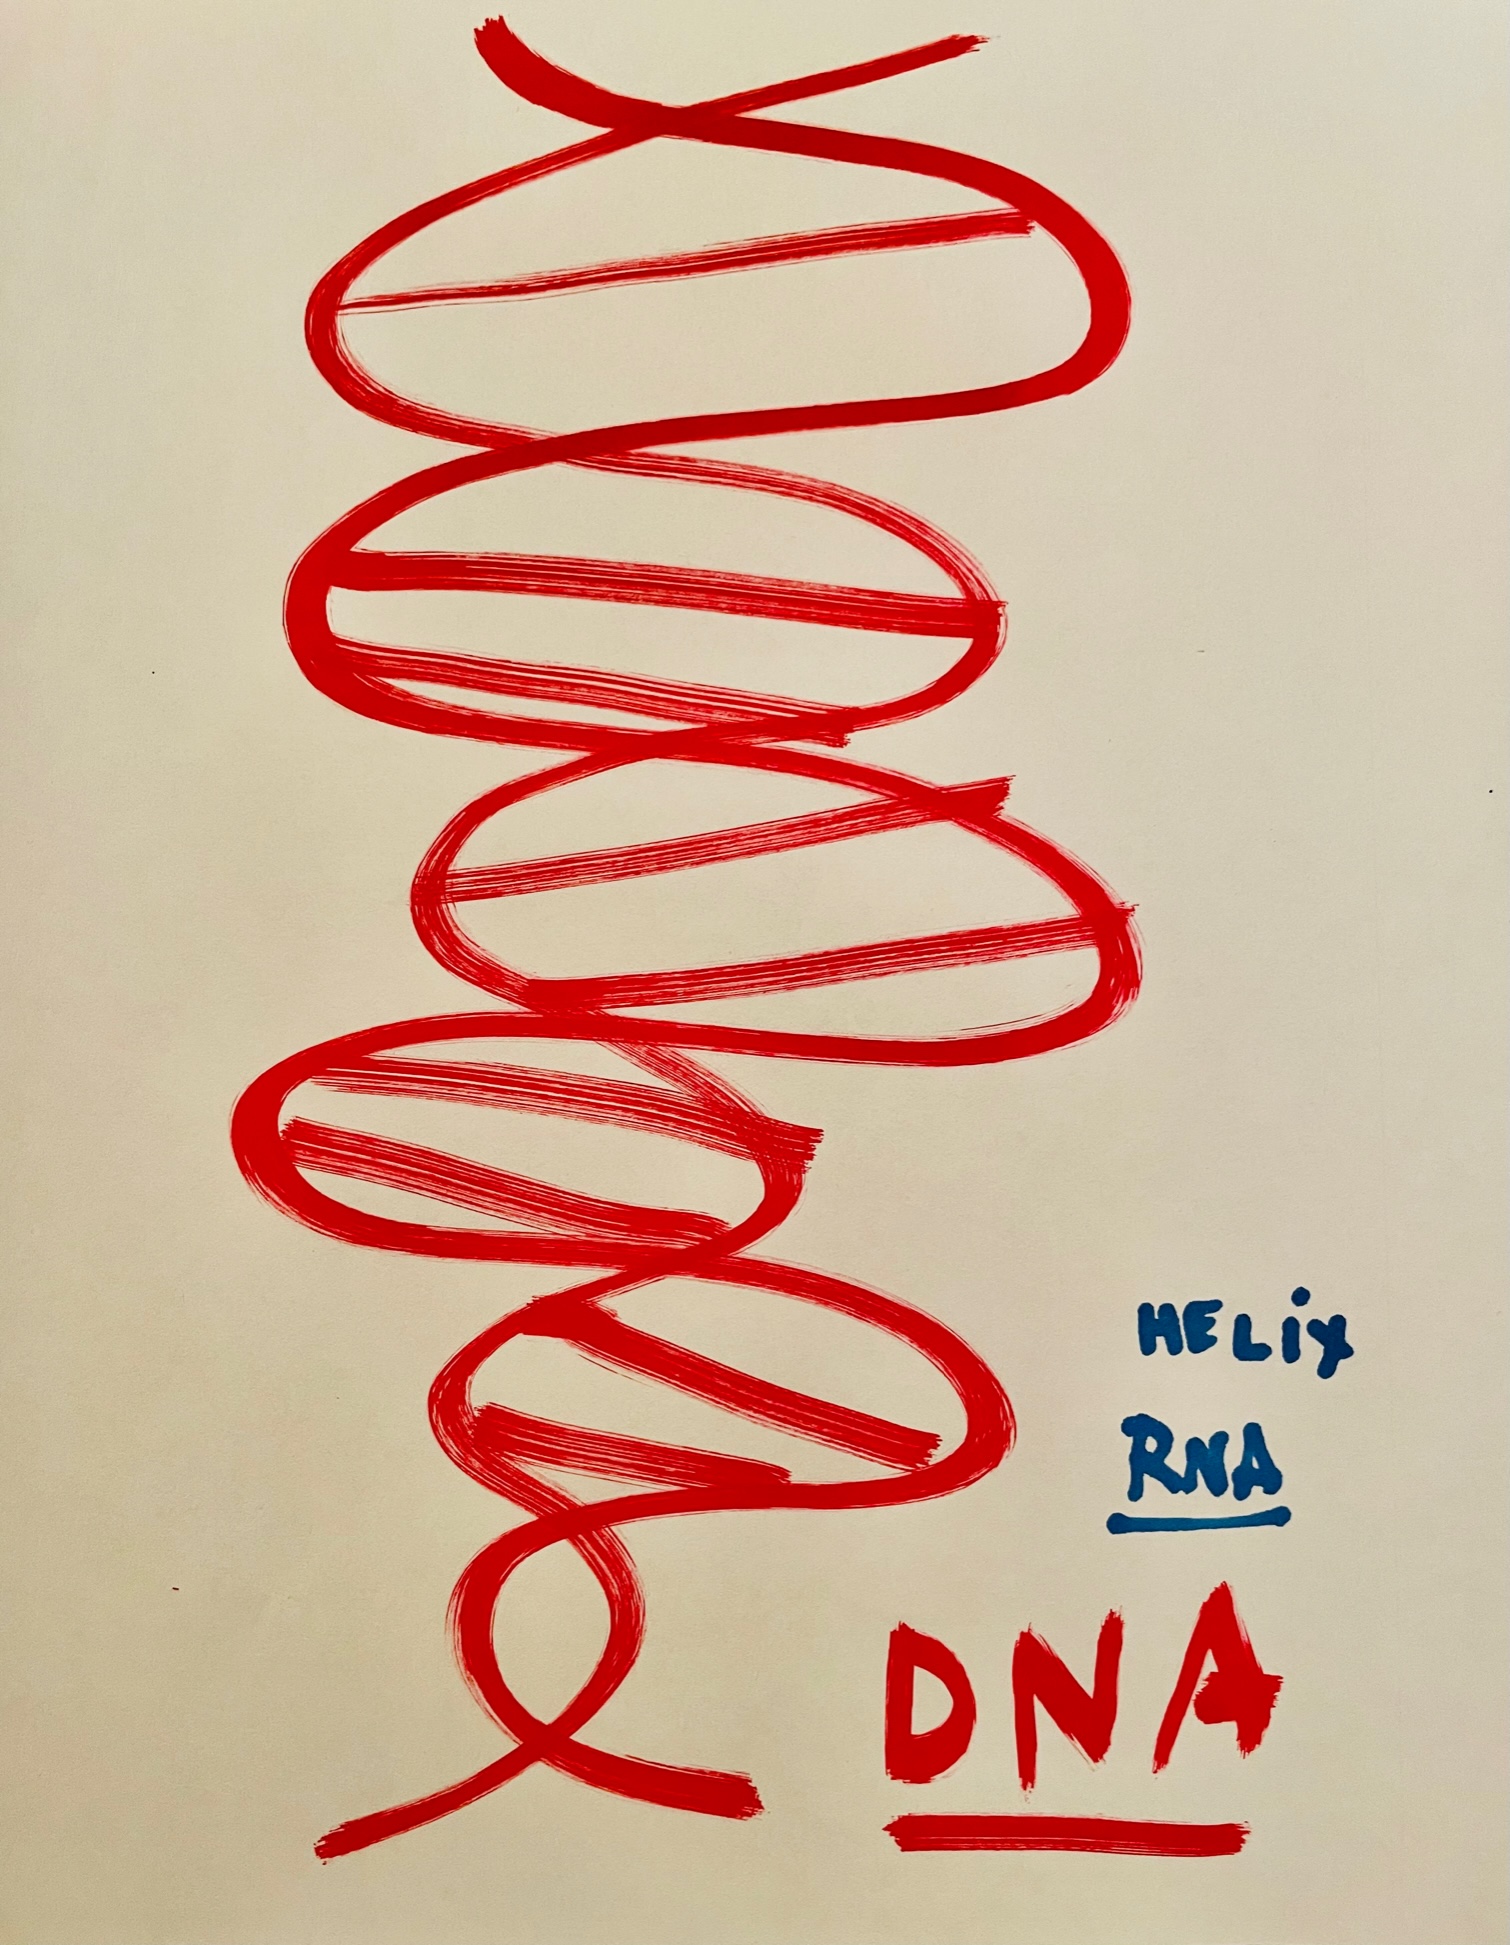 HELiX
RNA
DNA